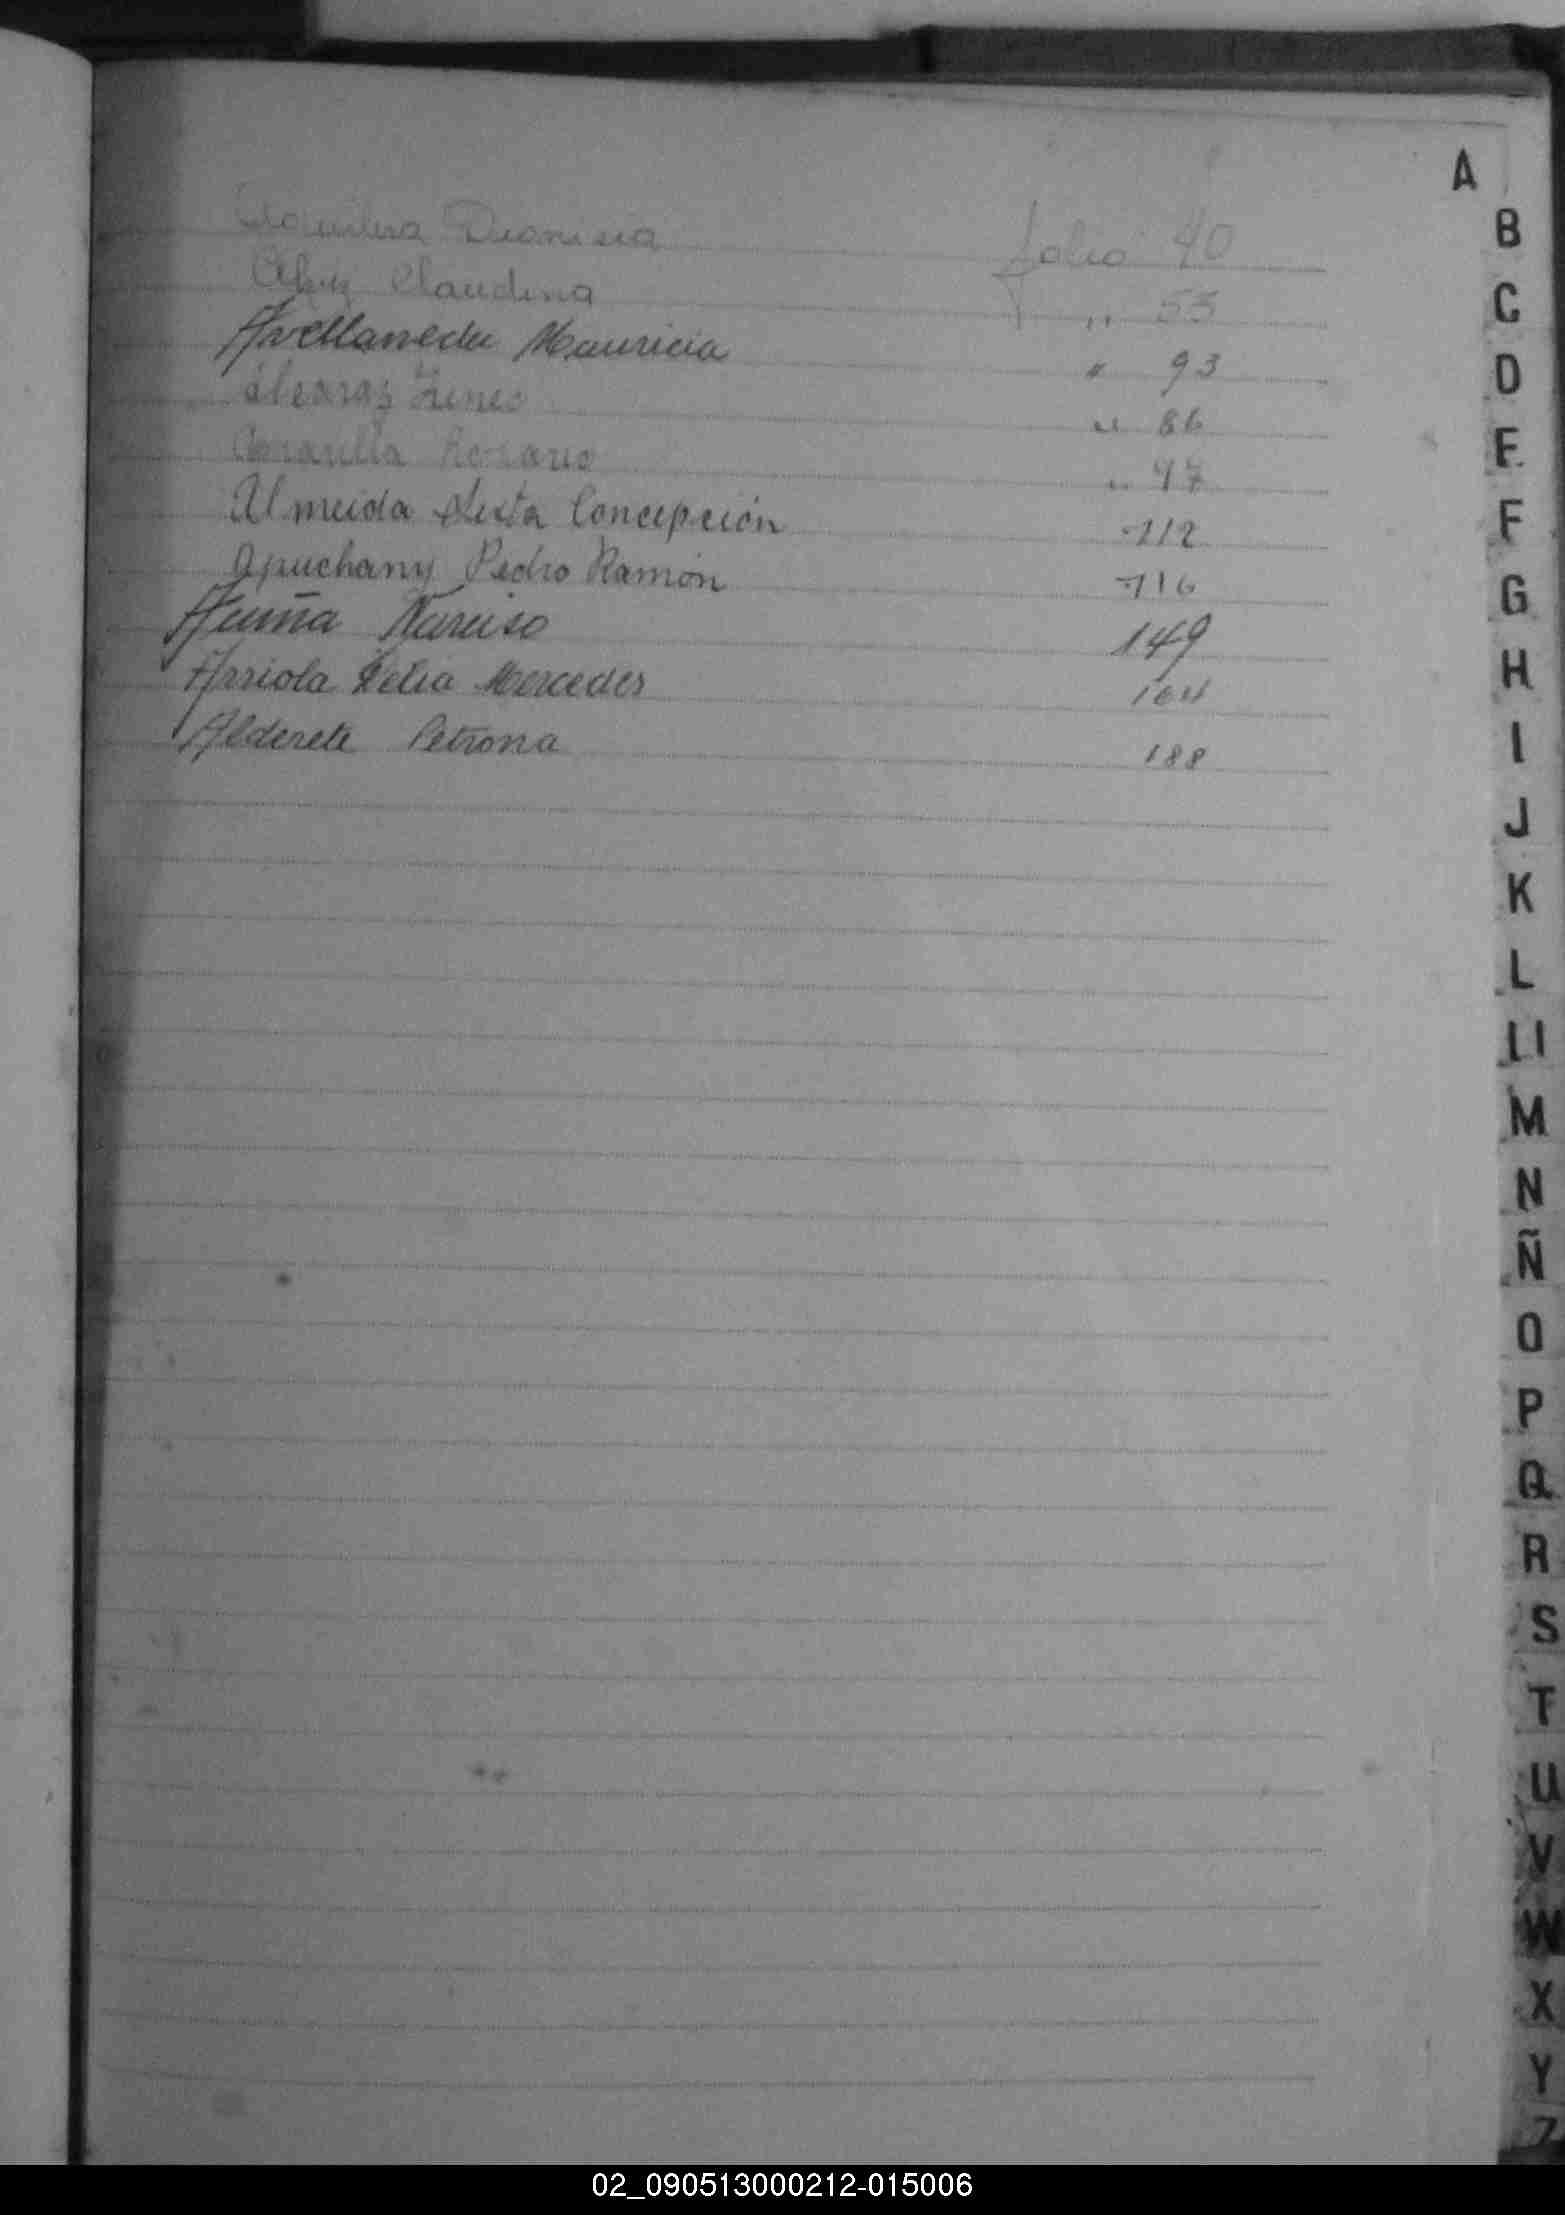 A
Aquilera Dionisia folio 40
Claudina " 55
Avellaneda Mauricia " 93
" 86
Amarilla Rosario " 97
Almeida Sixta Concepción -112
Apuchany Pedro Ramón -116
Acuña Narciso 149
Arriola Delia Mercedes 164
Alderete Petrona 188
B
C
D
E
F
G
H
I
J
K
L
Ll
M
N
Ñ
O
P
Q
R
S
T
U
V
W
X
Y
Z
02_090513000212-015006